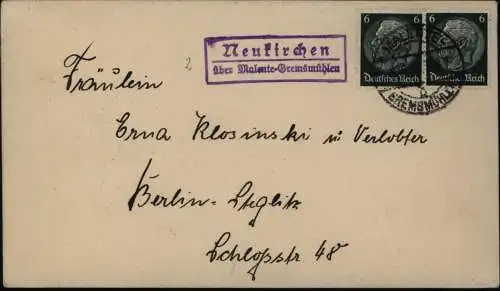 2
Neukirchen
über Malente-Gremsmühlen
6 6
Deutsches Reich Deutsches Reich
GREMSMÜHLEN
Fräulein
Erna Klosinski u Verlobter
Berlin-Steglitz
Schloßstr 48